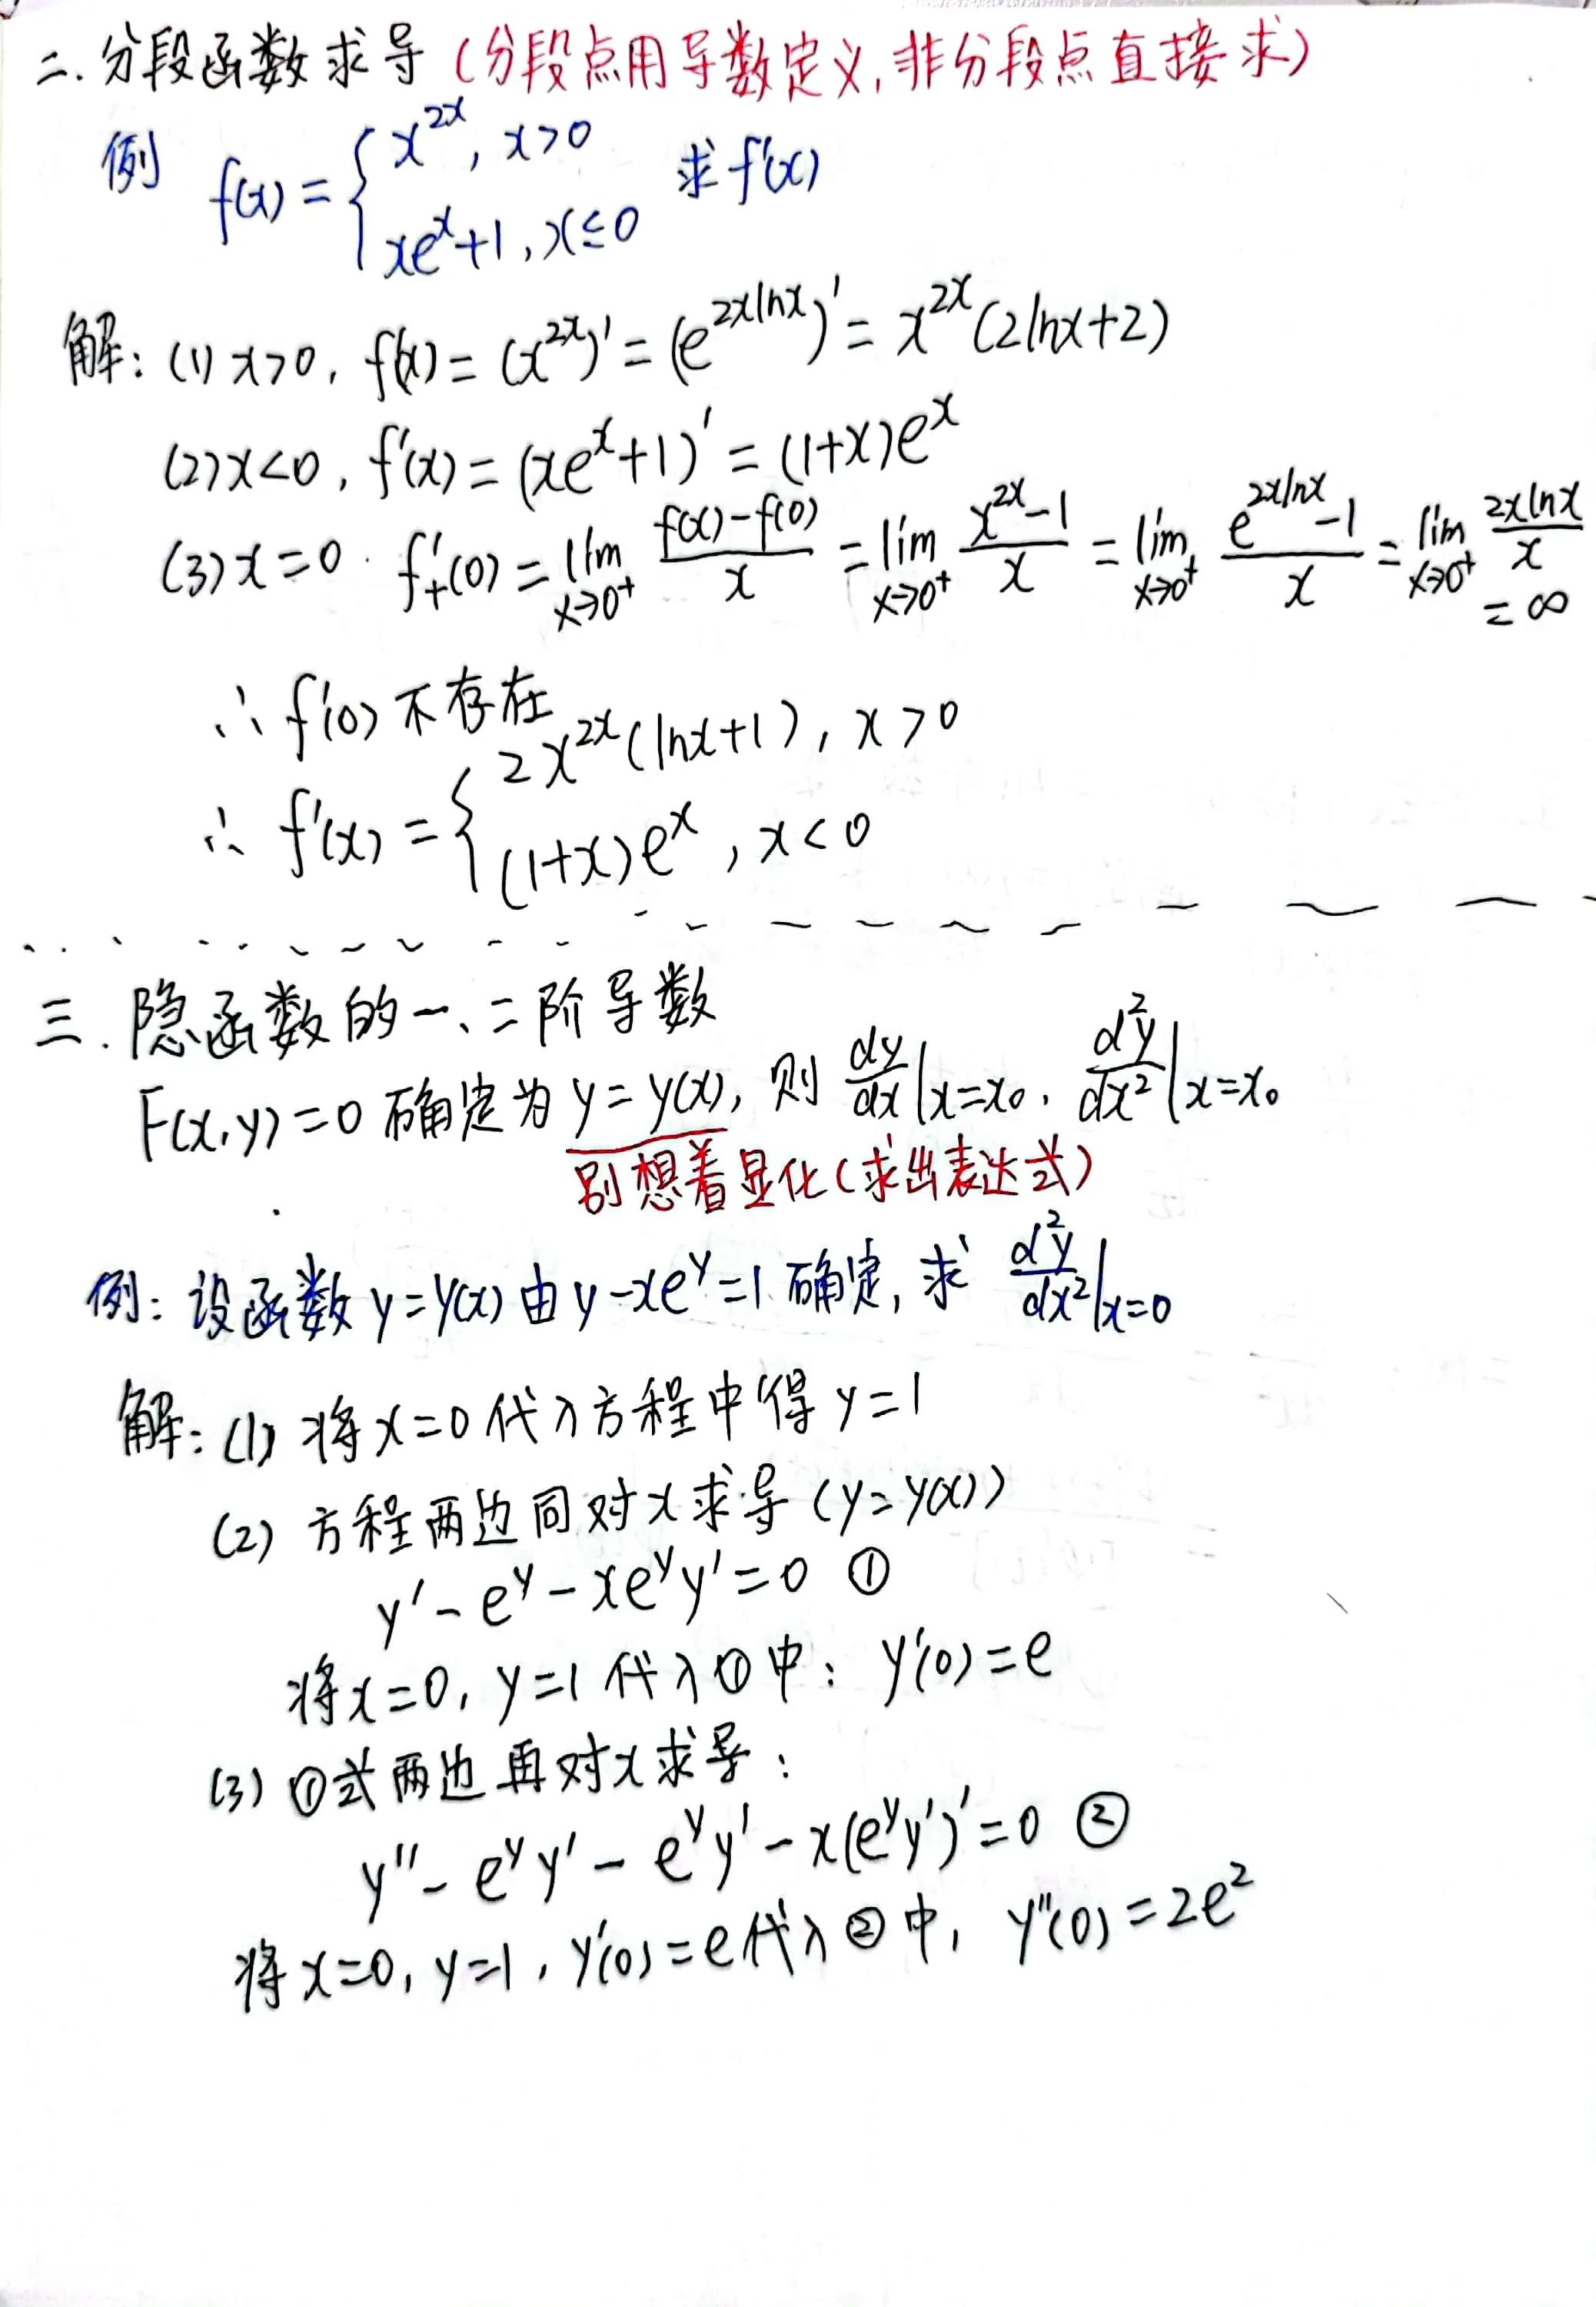 二. 分段函数求导 (分段点用导数定义, 非分段点直接求)
例 f(x) = { x^{2x}, x>0
xe^x+1, x≤0 求 f'(x)
解: (1) x>0, f'(x) = (x^{2x})' = (e^{2xlnx})' = x^{2x}(2lnx+2)
(2) x<0, f'(x) = (xe^x+1)' = (1+x)e^x
(3) x=0. f'_+(0) = lim_{x→0^+} \frac{f(x)-f(0)}{x} = lim_{x→0^+} \frac{x^{2x}-1}{x} = lim_{x→0^+} \frac{e^{2xlnx}-1}{x} = lim_{x→0^+} \frac{2xlnx}{x}
= ∞
∴ f'(0) 不存在
∴ f'(x) = { 2x^{2x}(lnx+1), x>0
(1+x)e^x, x<0
三. 隐函数的一、二阶导数
F(x,y)=0 确定为 y=y(x), 则 \frac{dy}{dx}|x=x₀, \frac{d²y}{dx²}|x=x₀
别想着显化(求出表达式)
例: 设函数 y=y(x) 由 y-xe^y=1 确定, 求 \frac{d²y}{dx²}|x=0
解: (1) 将 x=0 代入方程中得 y=1
(2) 方程两边同对 x 求导 (y=y(x))
y' - e^y - xe^y y' = 0 ①
将 x=0, y=1 代入①中: y'(0)=e
(3) ①式两边再对 x 求导:
y'' - e^y y' - e^y y' - x(e^y y')' = 0 ②
将 x=0, y=1, y'(0)=e 代入②中, y''(0)=2e²